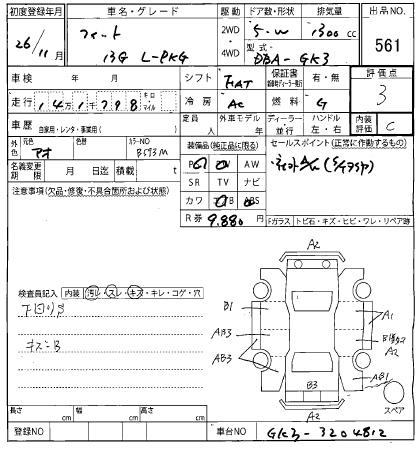 初度登録年月 車名・グレード 駆動 ドア数・形状 排気量 出品NO.
26/11月 フィット 13G L-PKG 2WD 4WD 5・W 1300cc 561
型式 DBA-GK3
車検 年 月 シフト FAT 保証書 有・無 評価点 3
走行 14万1千798 キロ マイル 冷房 AC 燃料 G
車歴 自家用・レンタ・事業用( ) 定員 人 外車モデル 年 ディーラー・並行 ハンドル 左・右 内装評価 C
外色 元色 アオ 色替 カラーNO B593M 装備品(純正品に限る) セールスポイント(正常に作動するもの)
名義変更期限 月 日迄 積載 t
PS PW AW
SR TV ナビ
カワ AB ABS
注意事項(欠品・修復・不具合箇所および状態)
R券 9,880円
Fガラス トビ石・キズ・ヒビ・ワレ・リペア跡
検査員記入 内装 汚レ・スレ・キズ・キレ・コゲ・穴
下回りS
キズ-B
A2
B1
A1
AB3
A2
AB3
AB1
B3
A2
スペア
長さ cm 幅 cm 高さ cm
登録NO 車台NO GK3-3204812